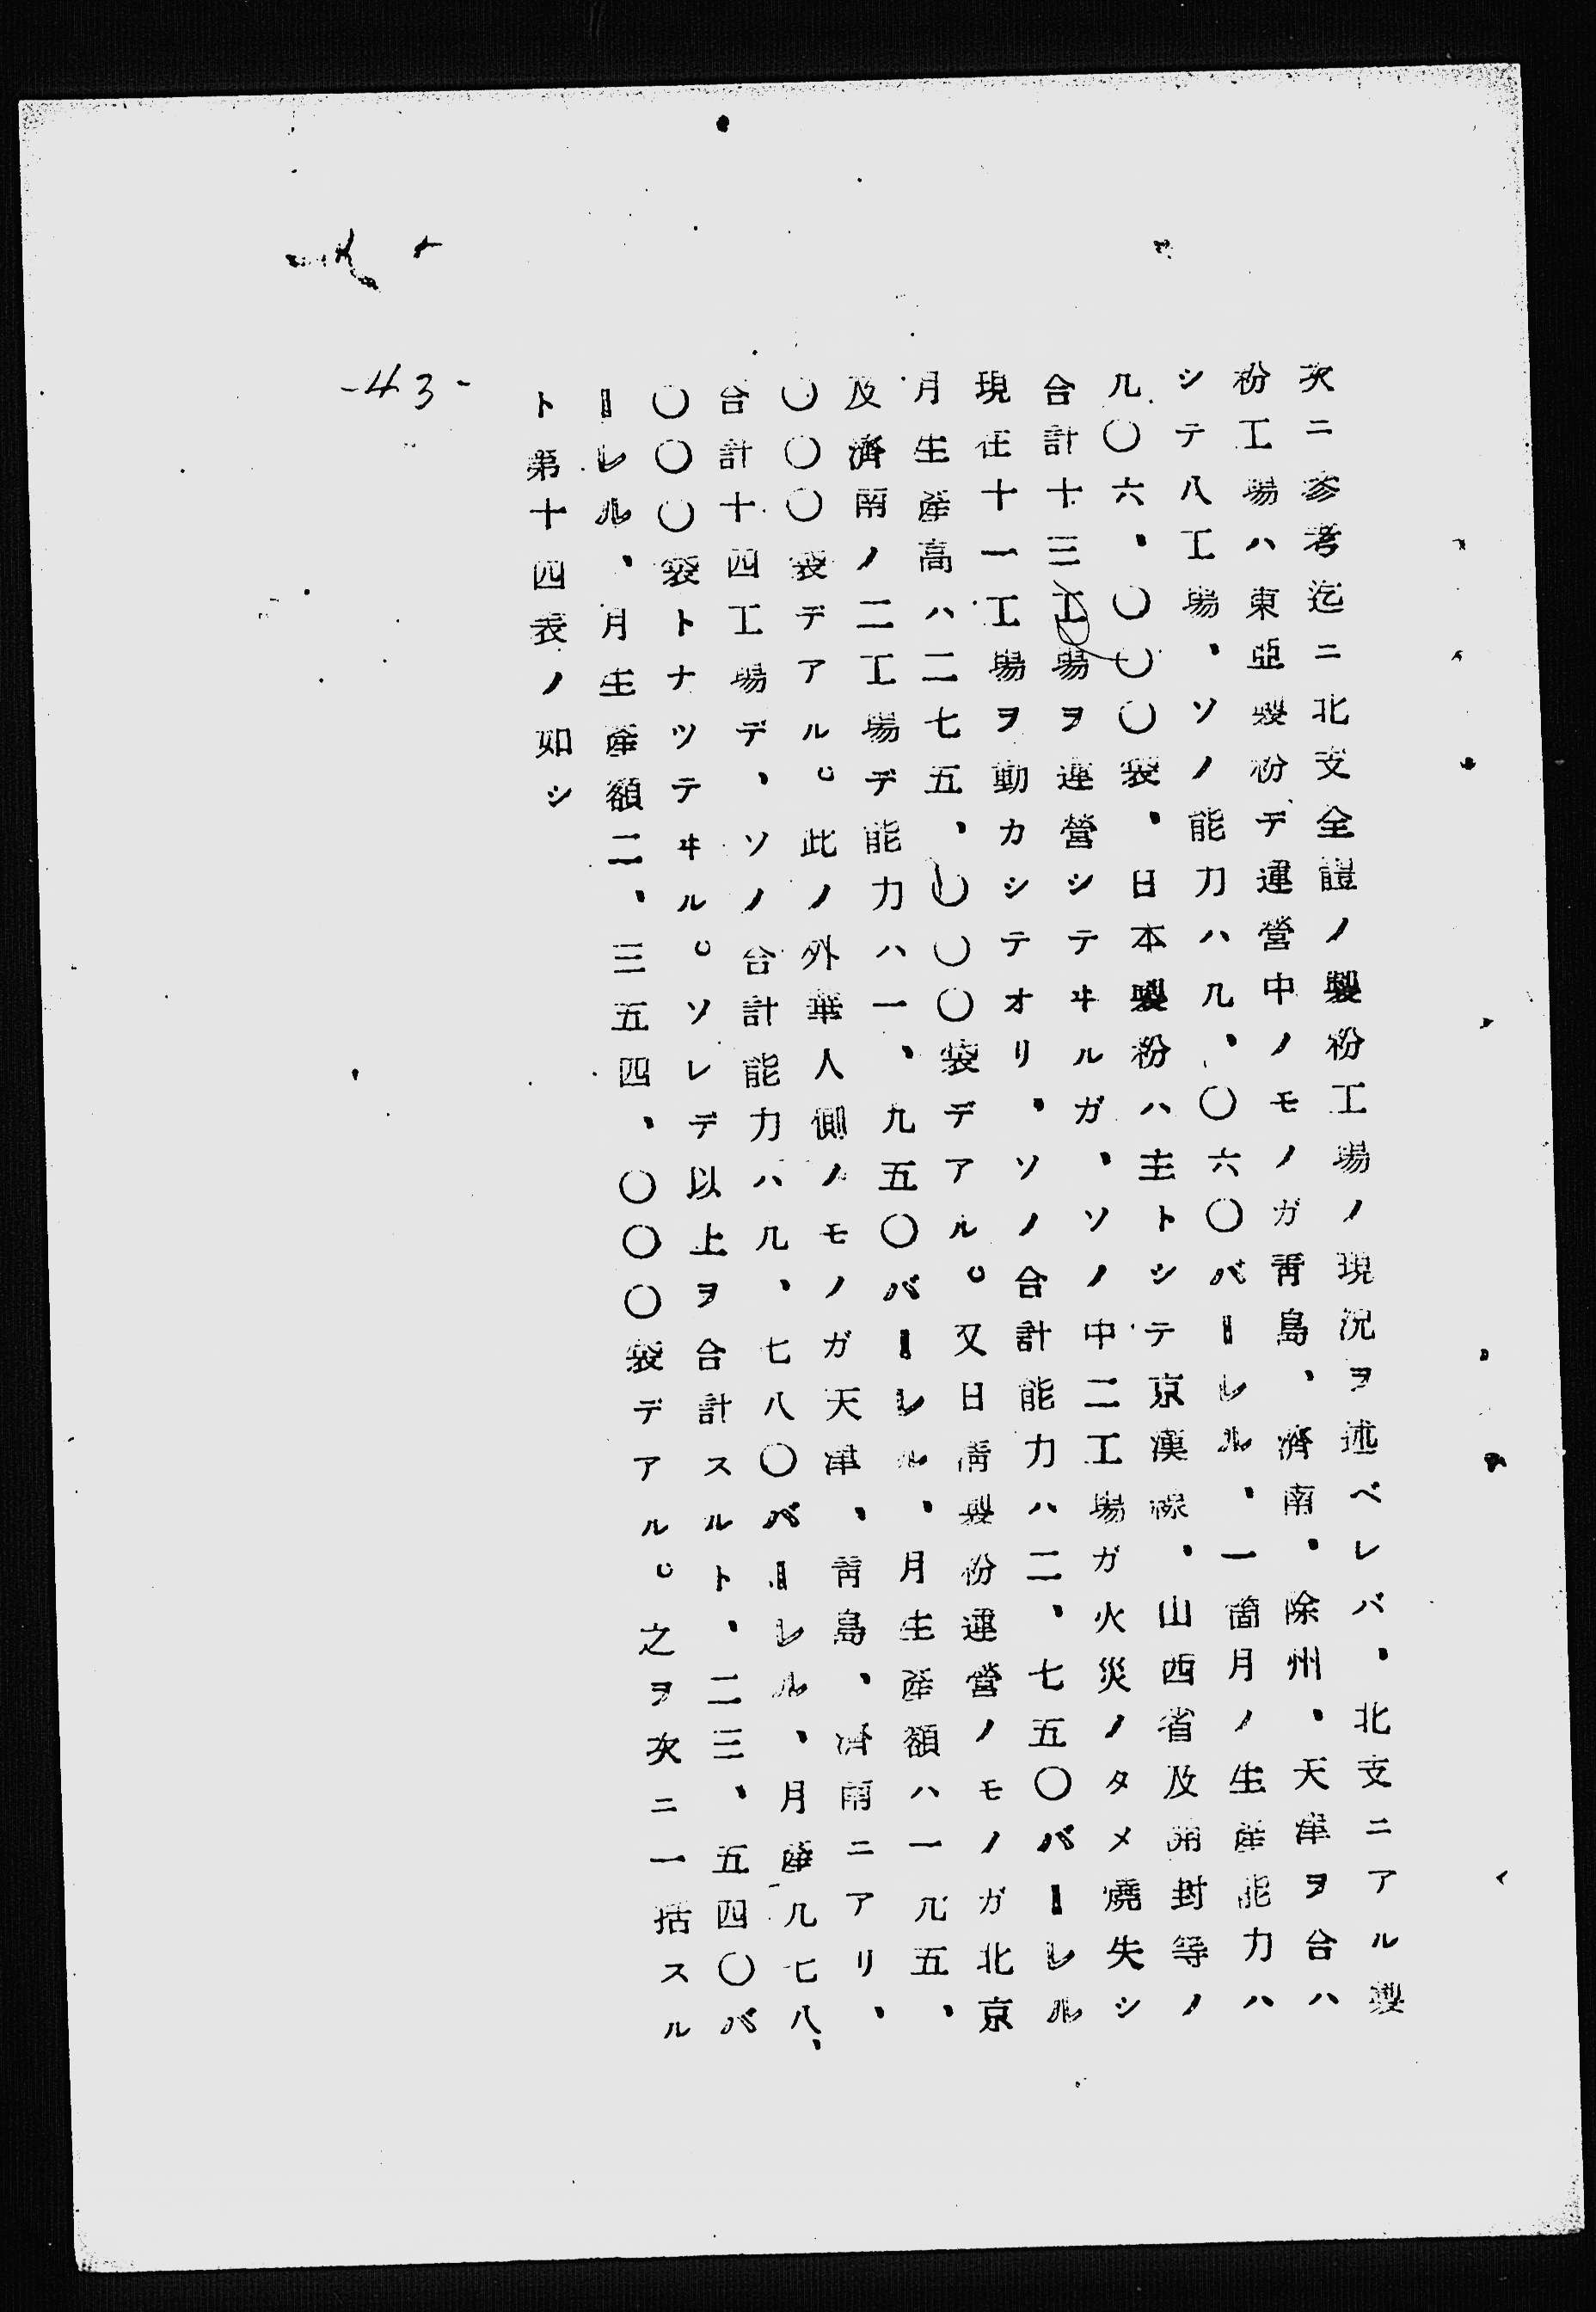 次ニ参考迄ニ北支全體ノ製粉工場ノ現況ヲ述ベレバ、北支ニアル製
粉工場ハ東亞製粉デ運營中ノモノガ靑島、濟南、除州、天津ヲ合ハ
シテ八工場、ソノ能力ハ九、〇六〇バーレル、一箇月ノ生産能力ハ
九〇六、〇〇〇袋、日本製粉ハ主トシテ京漢線、山西省及開封等ノ
合計十三工場ヲ運營シテヰルガ、ソノ中二工場ガ火災ノタメ燒失シ
現在十一工場ヲ動カシテオリ、ソノ合計能力ハ二、七五〇バーレル
月生産高ハ二七五、〇〇〇袋デアル。又日淸製粉運營ノモノガ北京
及濟南ノ二工場デ能力ハ一、九五〇バーレル、月生産額ハ一九五、
〇〇〇袋デアル。此ノ外華人側ノモノガ天津、靑島、濟南ニアリ、
合計十四工場デ、ソノ合計能力ハ九、七八〇バーレル、月産九七八、
〇〇〇袋トナツテヰル。ソレデ以上ヲ合計スルト、二三、五四〇バ
ーレル、月生産額二、三五四、〇〇〇袋デアル。之ヲ次ニ一括スル
ト第十四表ノ如シ
-43-